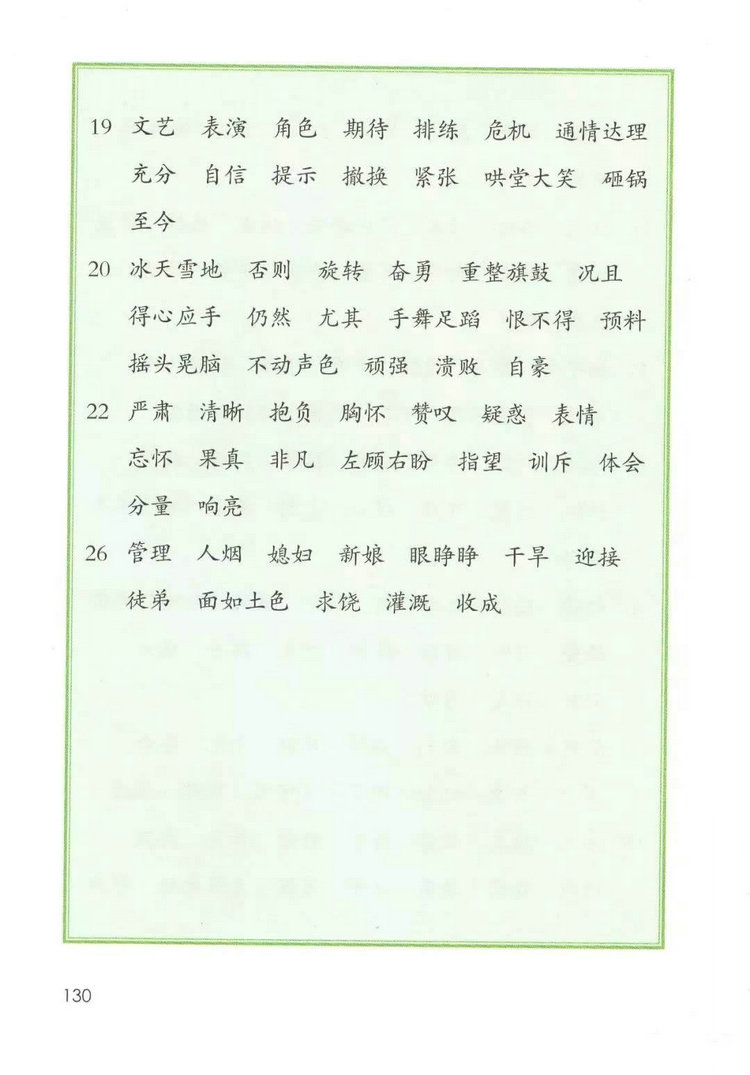 19 文艺 表演 角色 期待 排练 危机 通情达理
充分 自信 提示 撤换 紧张 哄堂大笑 砸锅
至今
20 冰天雪地 否则 旋转 奋勇 重整旗鼓 况且
得心应手 仍然 尤其 手舞足蹈 恨不得 预料
摇头晃脑 不动声色 顽强 溃败 自豪
22 严肃 清晰 抱负 胸怀 赞叹 疑惑 表情
忘怀 果真 非凡 左顾右盼 指望 训斥 体会
分量 响亮
26 管理 人烟 媳妇 新娘 眼睁睁 干旱 迎接
徒弟 面如土色 求饶 灌溉 收成
130